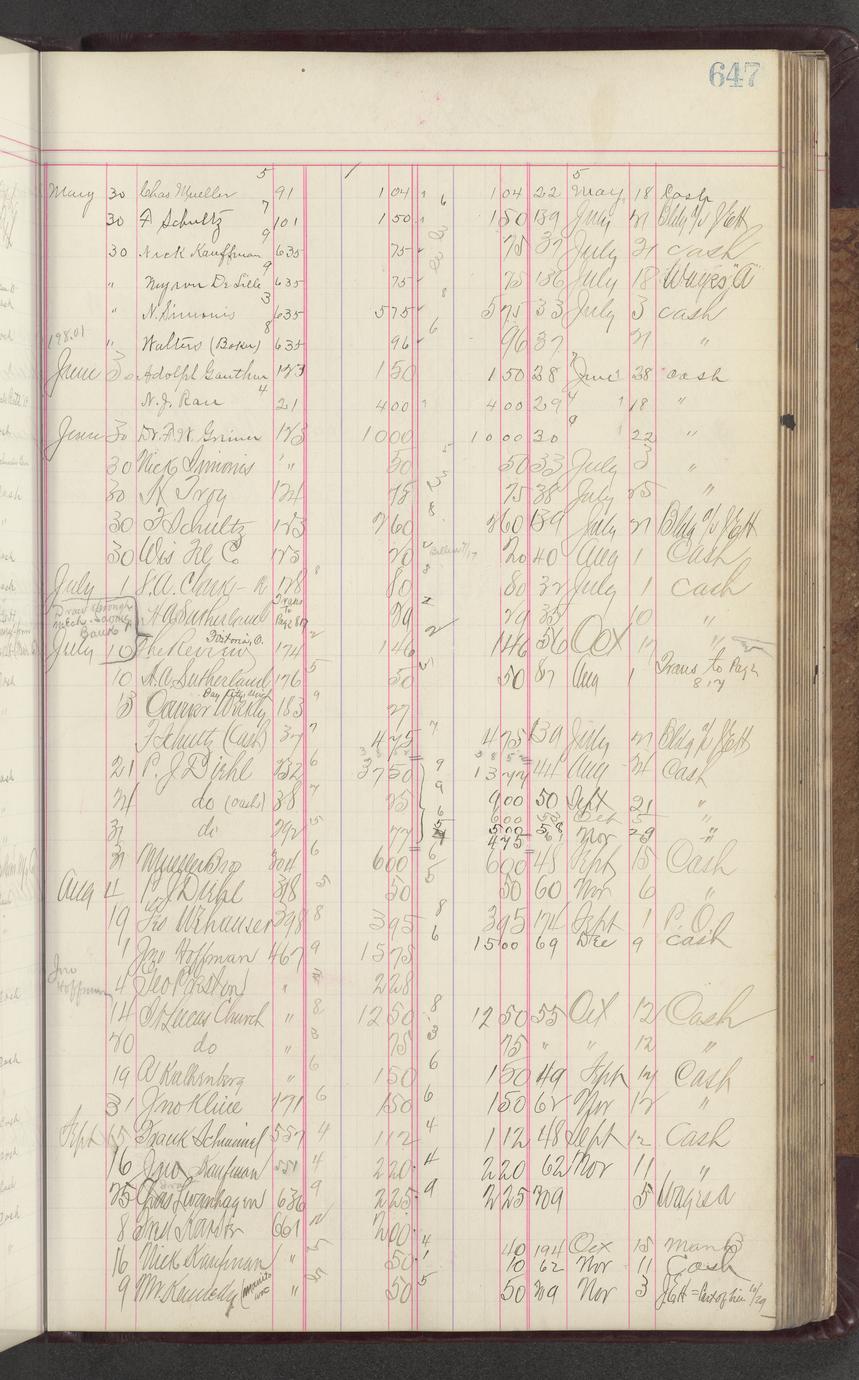 647
5 / 5
May 30 Chas Mueller 91 1 04 6 1 04 22 May 18 Cash
7
30 F Schultz 101 1 50 1 50 139 July 21
9
30 Nick Kauffman 635 75 75 37 July 31 cash
9
" Myron De Lille 635 75 75 136 July 18 Wages "A"
3
" N. Simonis 635 5 75 8 5 75 33 July 3 cash
8
198.01 " Walters (Baker) 635 96 6 96 37 21 "
June 30 Adolph Gauthier 123 1 50 1 50 28 June 28 cash
4
N. J. Rau 21 4 00 4 00 29 " 18 "
June 30 Dr. F. W. Griner 123 10 00 10 00 30 " 22 "
30 Nick Simonis " 50 5 50 33 July 3 "
30 K Troy 124 75 75 38 July 25 "
30 F Schultz 123 2 60 8 2 60 139 July 21
30 Wis Tel Co 125 20 20 40 Aug 1 Cash
July 1 S. A. Clark 128 8 80 8 80 32 July 1 cash
Draw through Mech. Savings Bank
H A Sutherland Trans to Page 817 29 2 29 35 10 "
Fostoria, O.
July 10 The Review 174 2 1 46 2 1 46 56 Oct 17 "
10 H. A. Sutherland 176 5 50 5 50 87 Aug 1 Trans to Page 817
Bay City Mich
13 Weekly 183 9 27
F Schultz (Cash) 37 7 4 75 7 4 75 139 July 21
21 P. J. Diehl 232 6 37 50 9 13 77 44 Aug 24 Cash
24 do (cash) 38 7 25 9 9 00 50 Sept 21 "
6 6 00 53 Oct 5 "
31 do 292 5 77 5 00 58 Nov 29 "
4 75
31 Bro 304 6 6 00 6 6 00 45 Sept 15 Cash
Aug 4 P J Diehl 318 5 50 5 50 60 Nov 6 "
19 Geo Wehauser 398 8 3 95 8 3 95 174 Sept 1 P. O.
6 15 00 69 Dec 9 cash
1 Jno Hoffman 467 9 15 75
Jno Hoffman
4 Geo " 2 28
14 St Lucas Church " 8 12 50 8 12 50 55 Oct 12 Cash
20 do " 3 75 3 75 " " 12 "
19 A Kalkenberg " 6 1 50 6 1 50 49 Sept 17 Cash
31 Jno Kline 171 6 1 50 6 1 50 62 Nov 12 "
Sept 15 Frank Schimmel 557 4 1 12 4 1 12 48 Sept 12 Cash
16 Jno Kaufman 551 4 2 20 4 2 20 62 Nov 11 "
25 Swanhagen 636 9 2 25 9 2 25 209 5 Wages A
8 661 2 2 00
4 40 194 Oct 15
16 Nick Kaufman " 5 50 1 10 62 Nov 11 Cash
9 Mr Kennedy " 50 5 50 209 Nov 3